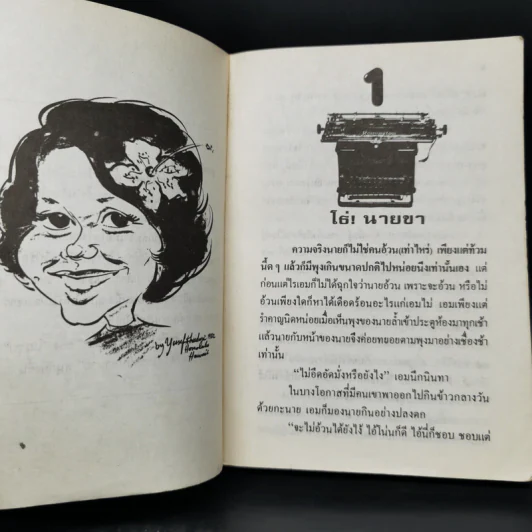 by
Honolulu
Hawaii
1
โธ่! นายขา
ความจริงนายก็ไม่ใช่คนอ้วน(เท่าไหร่) เพียงแต่ท้วม
นี้ด ๆ แล้วก็มีพุงเกินขนาดปกติไปหน่อยนึงเท่านั้นเอง แต่
ก่อนแต่ไรเอมก็ไม่ได้ฉุกใจว่านายอ้วน เพราะจะอ้วน หรือไม่
อ้วนเพียงใดก็หาได้เดือดร้อนอะไรแก่เอมไม่ เอมเพียงแต่
รำคาญนิดหน่อยเมื่อเห็นพุงของนายล้ำเข้าประตูห้องมาทุกเช้า
แล้วนายกับหน้าของนายจึงค่อยทยอยตามพุงมาอย่างเชื่องช้า
เท่านั้น
“ไม่อึดอัดมั่งหรือยังไง” เอมนึกนินทา
ในบางโอกาสที่มีคนเขาพาออกไปกินข้าวกลางวัน
ด้วยกะนาย เอมก็มองนายกินอย่างปลงตก
“จะไม่อ้วนได้ยังไง้ ไอ้โน่นก็ดี ไอ้นี่ก็ชอบ ชอบแต่